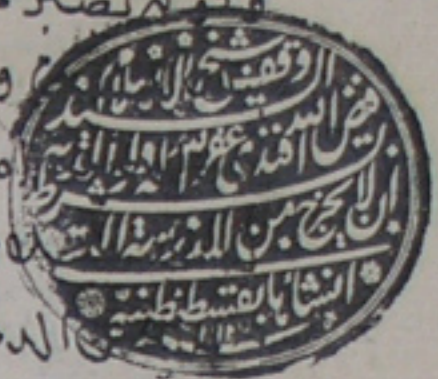 وقف شيخ الاسلام السيد
فيض الله افندى غفر الله له ولوالديه بشرط
ان لا يخرج من المدرسة التى
انشأها بقسطنطنية